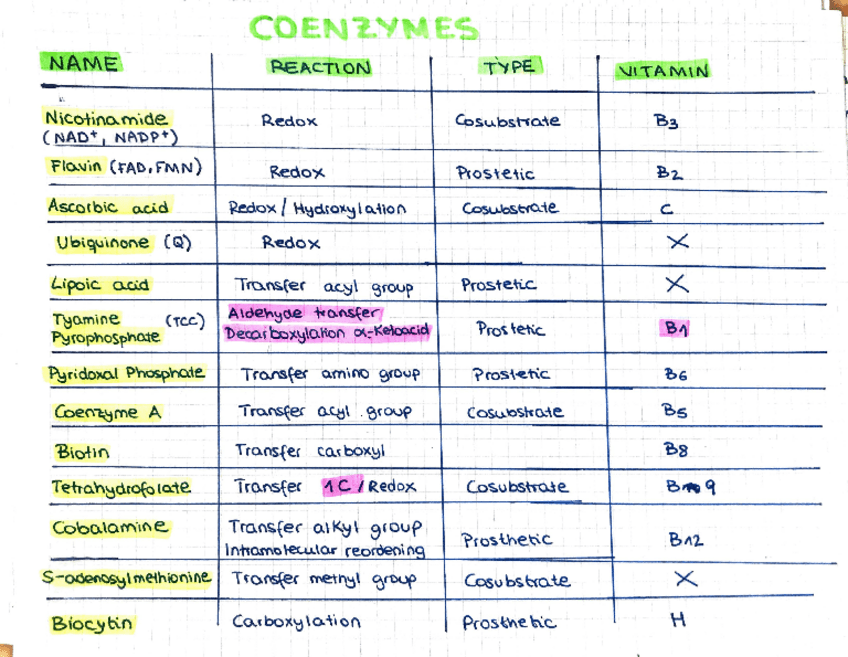 COENZYMES
NAME REACTION TYPE VITAMIN
Nicotinamide Redox Cosubstrate B3
(NAD+, NADP+)
Flavin (FAD, FMN) Redox Prostetic B2
Ascorbic acid Redox / Hydroxylation Cosubstrate C
Ubiquinone (Q) Redox X
Lipoic acid Transfer acyl group Prostetic X
Tyamine (TCC) Aldehyde transfer Prostetic B1
Pyrophosphate Decarboxylation α-Ketoacid
Pyridoxal Phosphate Transfer amino group Prostetic B6
Coenzyme A Transfer acyl group Cosubstrate B5
Biotin Transfer carboxyl B8
Tetrahydrofolate Transfer 1C / Redox Cosubstrate B9
Cobalamine Transfer alkyl group Prosthetic B12
Intramolecular reordening
S-adenosylmethionine Transfer methyl group Cosubstrate X
Biocytin Carboxylation Prosthetic H